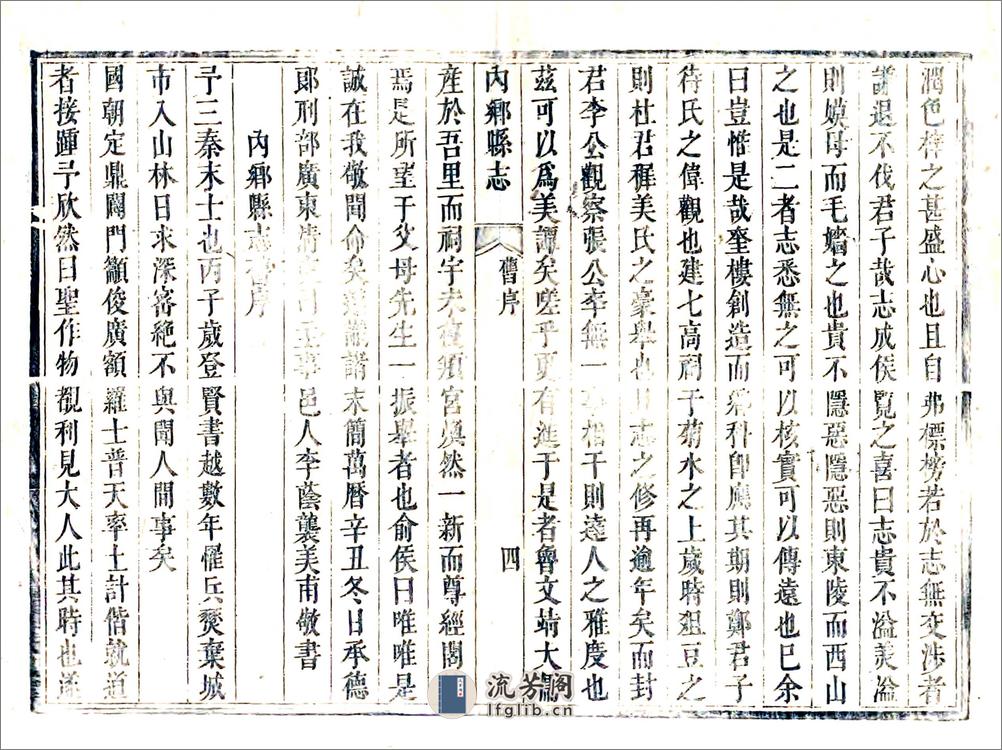 潤色梓之甚盛心也且自弗標榜若於志無交涉者
謙退不伐君子哉志成侯覧之喜曰志貴不溢美溢
則嫫母而毛嬙之也貴不隱惡隱惡則東陵而西山
之也是二者志悉無之可以核實可以傳遠也已余
曰豈惟是哉奎樓創造而科卽應其期則鄭君子
待氏之偉觀也建七高祠于菊水之上歲時俎豆之
則杜君穉美氏之豪舉也日志之修再逾年矣而封
君李公觀察張公率無一相干則達人之雅度也
茲可以爲美譚矣嗟乎更有進于是者魯文靖大
內鄉縣志 舊序 四
產於吾里而祠宇未學宮煥然一新而尊經閣
焉是所望于父母先生一振舉者也俞侯曰唯唯是
誠在我敬聞命矣諸末簡萬曆辛丑冬日承德
郎刑部廣東清吏司主事邑人李蔭襲美甫敬書
內鄉縣志舊序
予三秦末士也丙子歲登賢書越數年罹兵燹棄城
市入山林日求深審絶不與聞人間事矣
國朝定鼎闢門籲俊廣額羅士普天率土計偕就道
者接踵予欣然曰聖作物覩利見大人此其時也遂
流芳阁
lfglib.cn